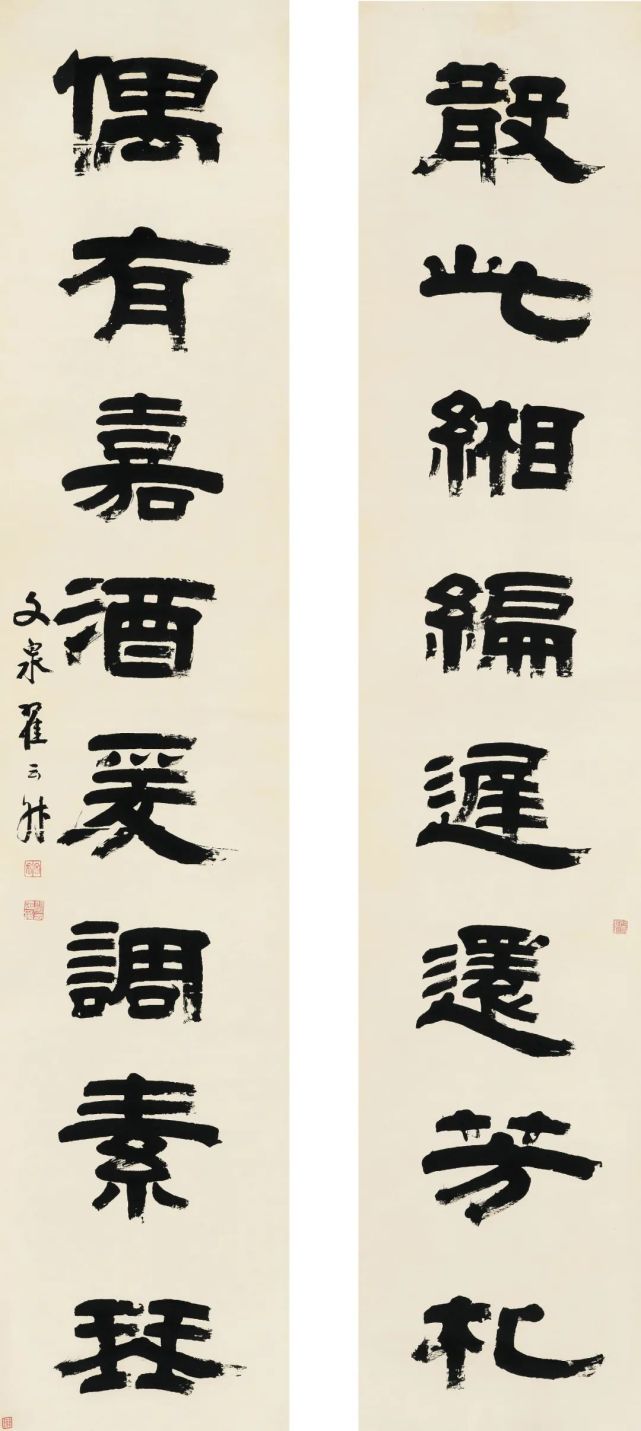 散此緗編遲還芳札
偶有嘉酒爰調素琴
文泉翟云升